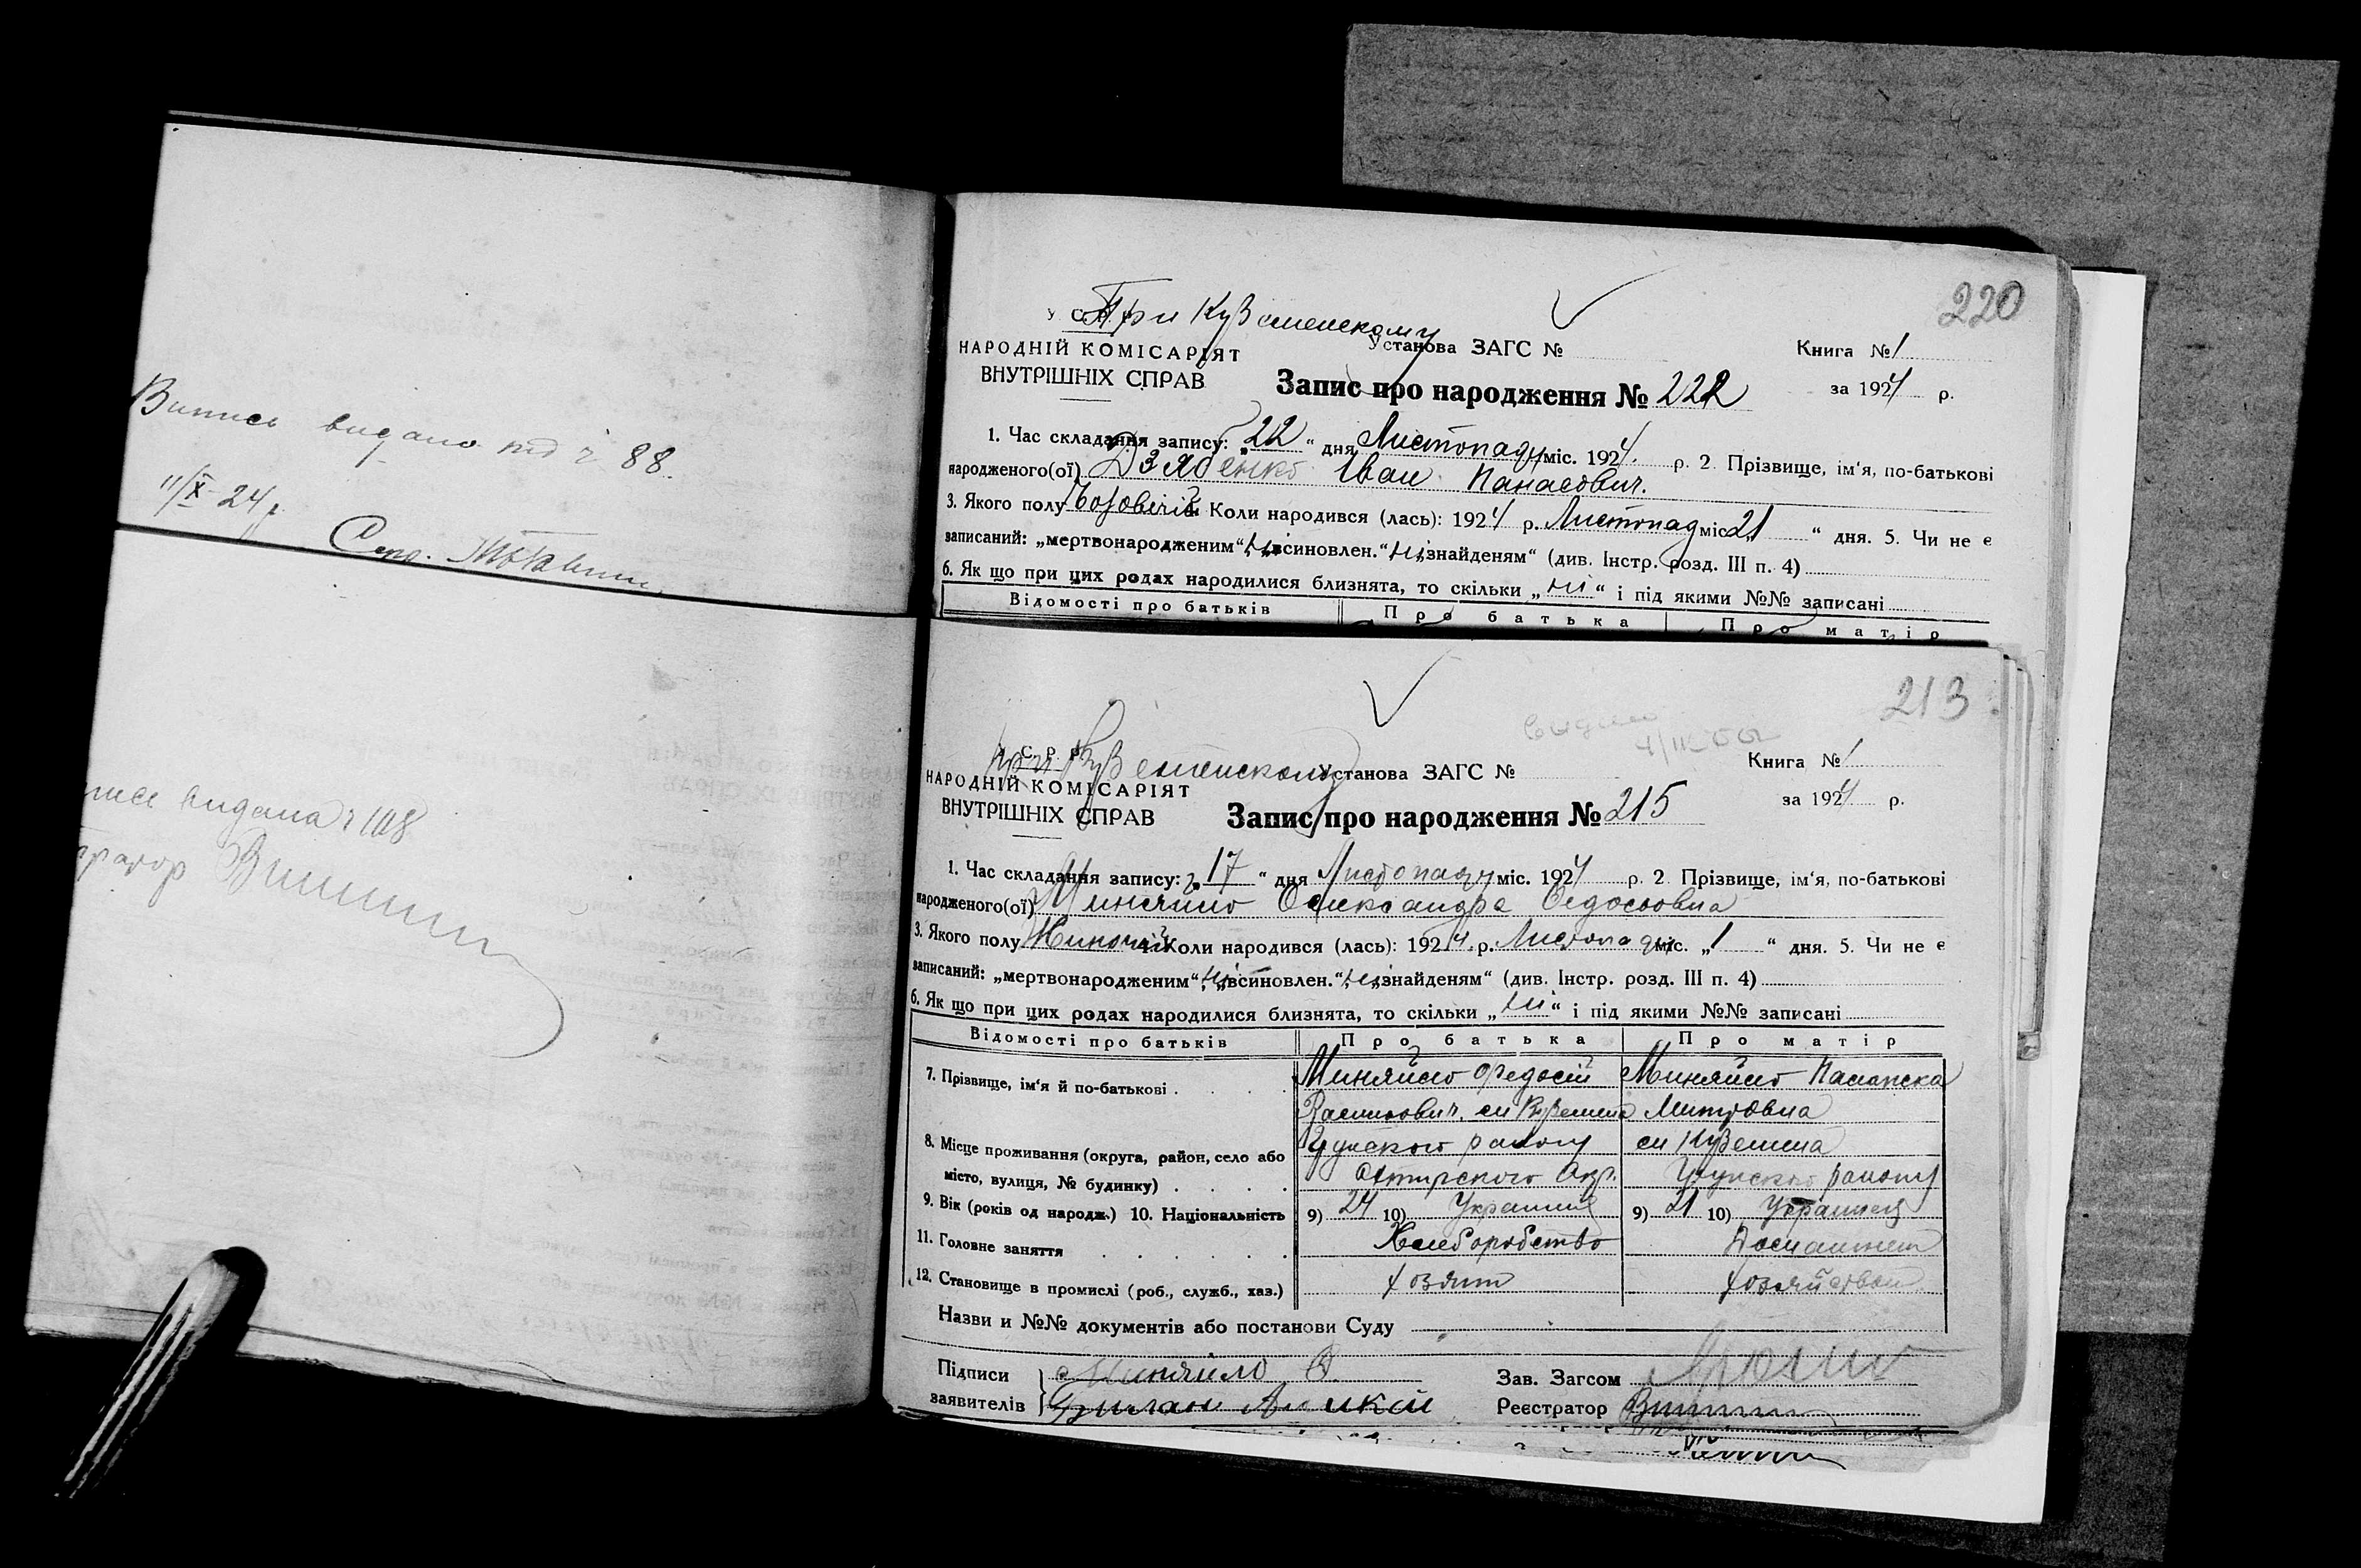 Випись видано під ч 88.
11/X 24 р.
видана ч 108
220
При Куземенскому
У. С. Р. Р.
НАРОДНІЙ КОМІСАРІЯТ
ВНУТРІШНІХ СПРАВ
Установа ЗАГС №
Книга № 1
Запис про народження № 222
за 1924 р.
1. Час складання запису: „22“ дня Листопаду міс. 1924 р. 2 Прізвище, ім‘я, по-батькові
народженого(ої) Дзябенко Іван Панасович.
3. Якого полу 4. Коли народився (лась): 1924 р. Листопад міс. „21“ дня. 5. Чи не є
записаний: „мертвонародженим“ ні, „всиновлен.“ ні, „знайденям“ (див. Інстр. розд. III п. 4)
6. Як що при цих родах народилися близнята, то скільки „ні“ і під якими №№ записані
Відомості про батьків Про батька Про матір
213
При Куземенскому
У. С. Р. Р.
НАРОДНІЙ КОМІСАРІЯТ
ВНУТРІШНІХ СПРАВ
Установа ЗАГС №
Книга № 1
Запис про народження № 215
за 1924 р.
1. Час складання запису: „17“ дня Листопаду міс. 1924 р. 2 Прізвище, ім‘я, по-батькові
народженого(ої) Миняйло Олександра Федосовна
3. Якого полу Жиночій 4. Коли народився (лась): 1924 р. Листопаду міс. „1“ дня. 5. Чи не є
записаний: „мертвонародженим“ ні, „всиновлен.“ ні, „знайденям“ (див. Інстр. розд. III п. 4)
6. Як що при цих родах народилися близнята, то скільки „ні“ і під якими №№ записані
Відомості про батьків Про батька Про матір
7. Прізвище, ім‘я й по-батькові Миняйло Федосій Миняйло
Василович, сл Куземена Митровна
8. Місце проживання (округа, район, село або Грунского району сл Куземена
місто, вулиця, № будинку) Охтирского Окр. Грунского району
9. Вік (років од народж.) 10. Національність 9) 24 10) 9) 21 10)
11. Головне заняття Хлеборобство
12. Становище в промислі (роб., служб., хаз.) хозяин
Назви и №№ документів або постанови Суду
Підписи заявителів Миняйло Ф.
Зав. Загсом
Реєстратор